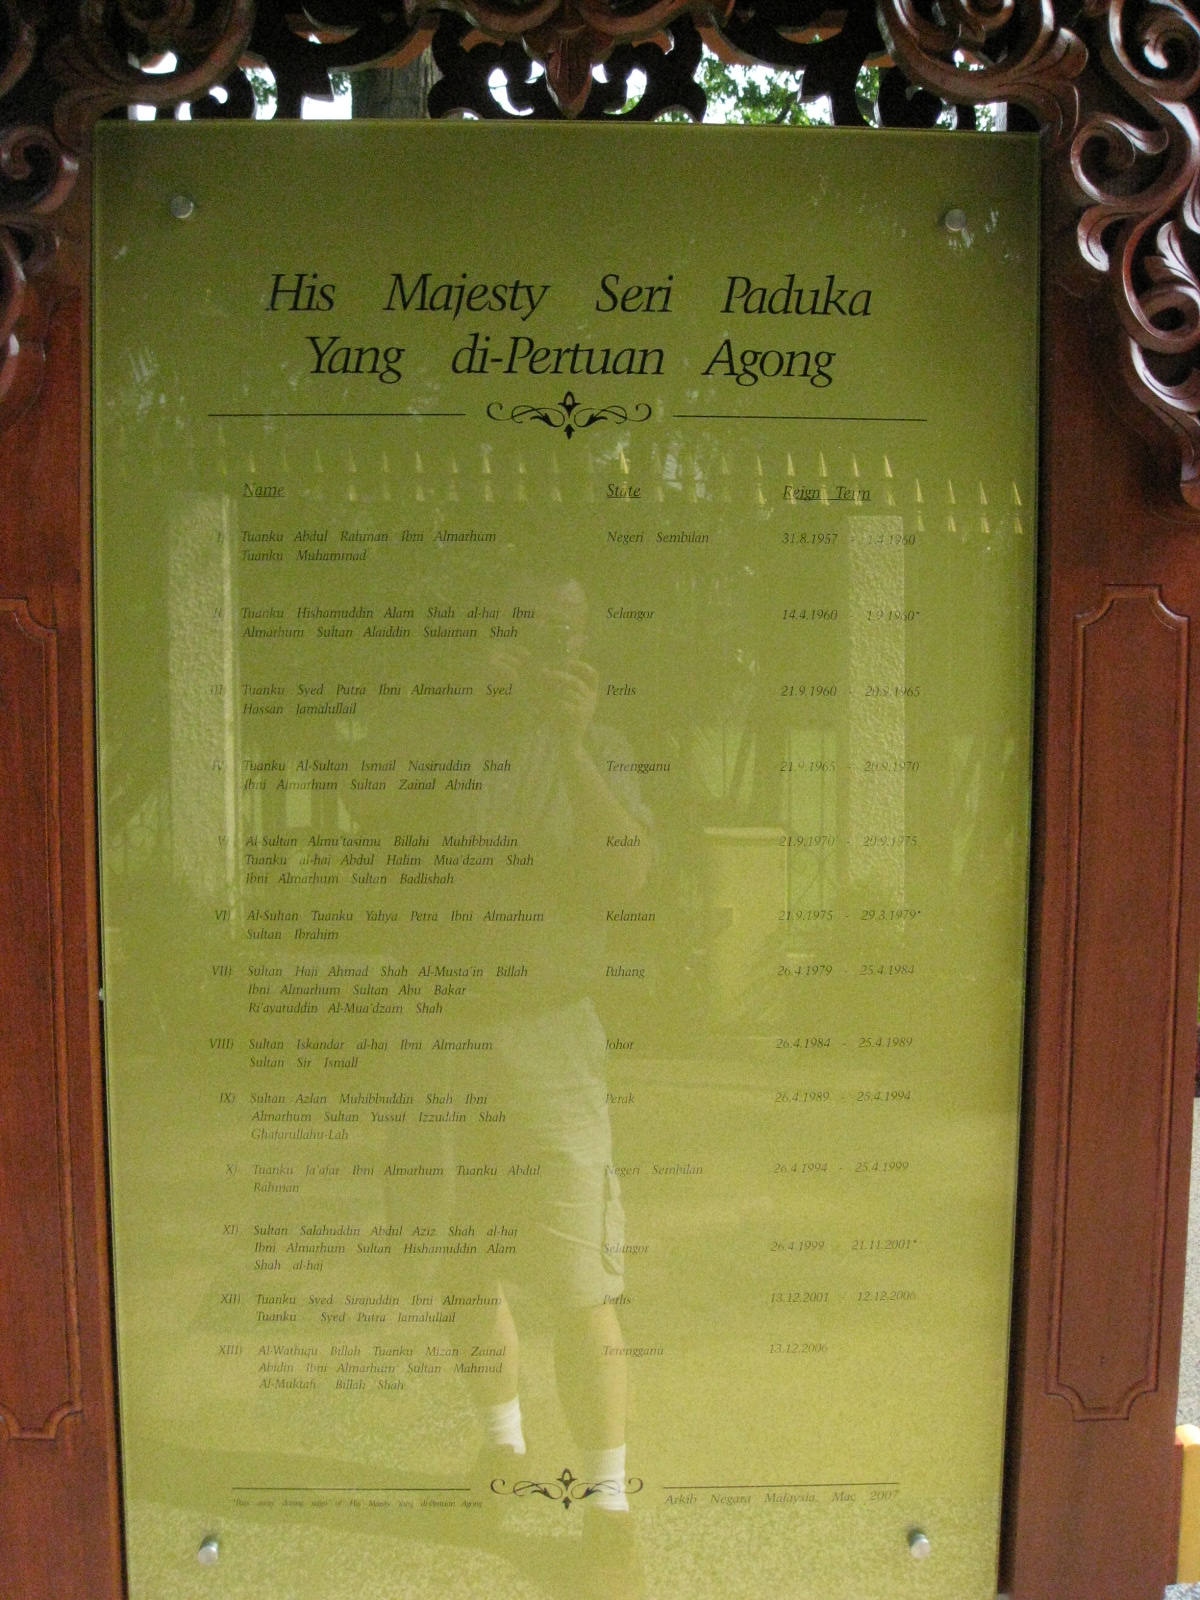 His Majesty Seri Paduka
Yang di-Pertuan Agong
Name State Reign Term
I) Tuanku Abdul Rahman Ibni Almarhum Negeri Sembilan 31.8.1957 - 1.4.1960
Tuanku Muhammad
II) Tuanku Hishamuddin Alam Shah al-haj Ibni Selangor 14.4.1960 - 1.9.1960*
Almarhum Sultan Alaiddin Sulaiman Shah
III) Tuanku Syed Putra Ibni Almarhum Syed Perlis 21.9.1960 - 20.9.1965
Hassan Jamalullail
IV) Tuanku Al-Sultan Ismail Nasiruddin Shah Terengganu 21.9.1965 - 20.9.1970
Ibni Almarhum Sultan Zainal Abidin
V) Al-Sultan Almu'tasimu Billahi Muhibbuddin Kedah 21.9.1970 - 20.9.1975
Tuanku al-haj Abdul Halim Mua'dzam Shah
Ibni Almarhum Sultan Badlishah
VI) Al-Sultan Tuanku Yahya Petra Ibni Almarhum Kelantan 21.9.1975 - 29.3.1979*
Sultan Ibrahim
VII) Sultan Haji Ahmad Shah Al-Musta'in Billah Pahang 26.4.1979 - 25.4.1984
Ibni Almarhum Sultan Abu Bakar
Ri'ayatuddin Al-Mua'dzam Shah
VIII) Sultan Iskandar al-haj Ibni Almarhum Johor 26.4.1984 - 25.4.1989
Sultan Sir Ismail
IX) Sultan Azlan Muhibbuddin Shah Ibni Perak 26.4.1989 - 25.4.1994
Almarhum Sultan Yussuf Izzuddin Shah
Ghafarullahu-Lah
X) Tuanku Ja'afar Ibni Almarhum Tuanku Abdul Negeri Sembilan 26.4.1994 - 25.4.1999
Rahman
XI) Sultan Salahuddin Abdul Aziz Shah al-haj Selangor 26.4.1999 - 21.11.2001*
Ibni Almarhum Sultan Hishamuddin Alam
Shah al-haj
XII) Tuanku Syed Sirajuddin Ibni Almarhum Perlis 13.12.2001 - 12.12.2006
Tuanku Syed Putra Jamalullail
XIII) Al-Wathiqu Billah Tuanku Mizan Zainal Terengganu 13.12.2006
Abidin Ibni Almarhum Sultan Mahmud
Al-Muktafi Billah Shah
*Pass away during reign of His Majesty Yang di-Pertuan Agong
Arkib Negara Malaysia, Mac 2007